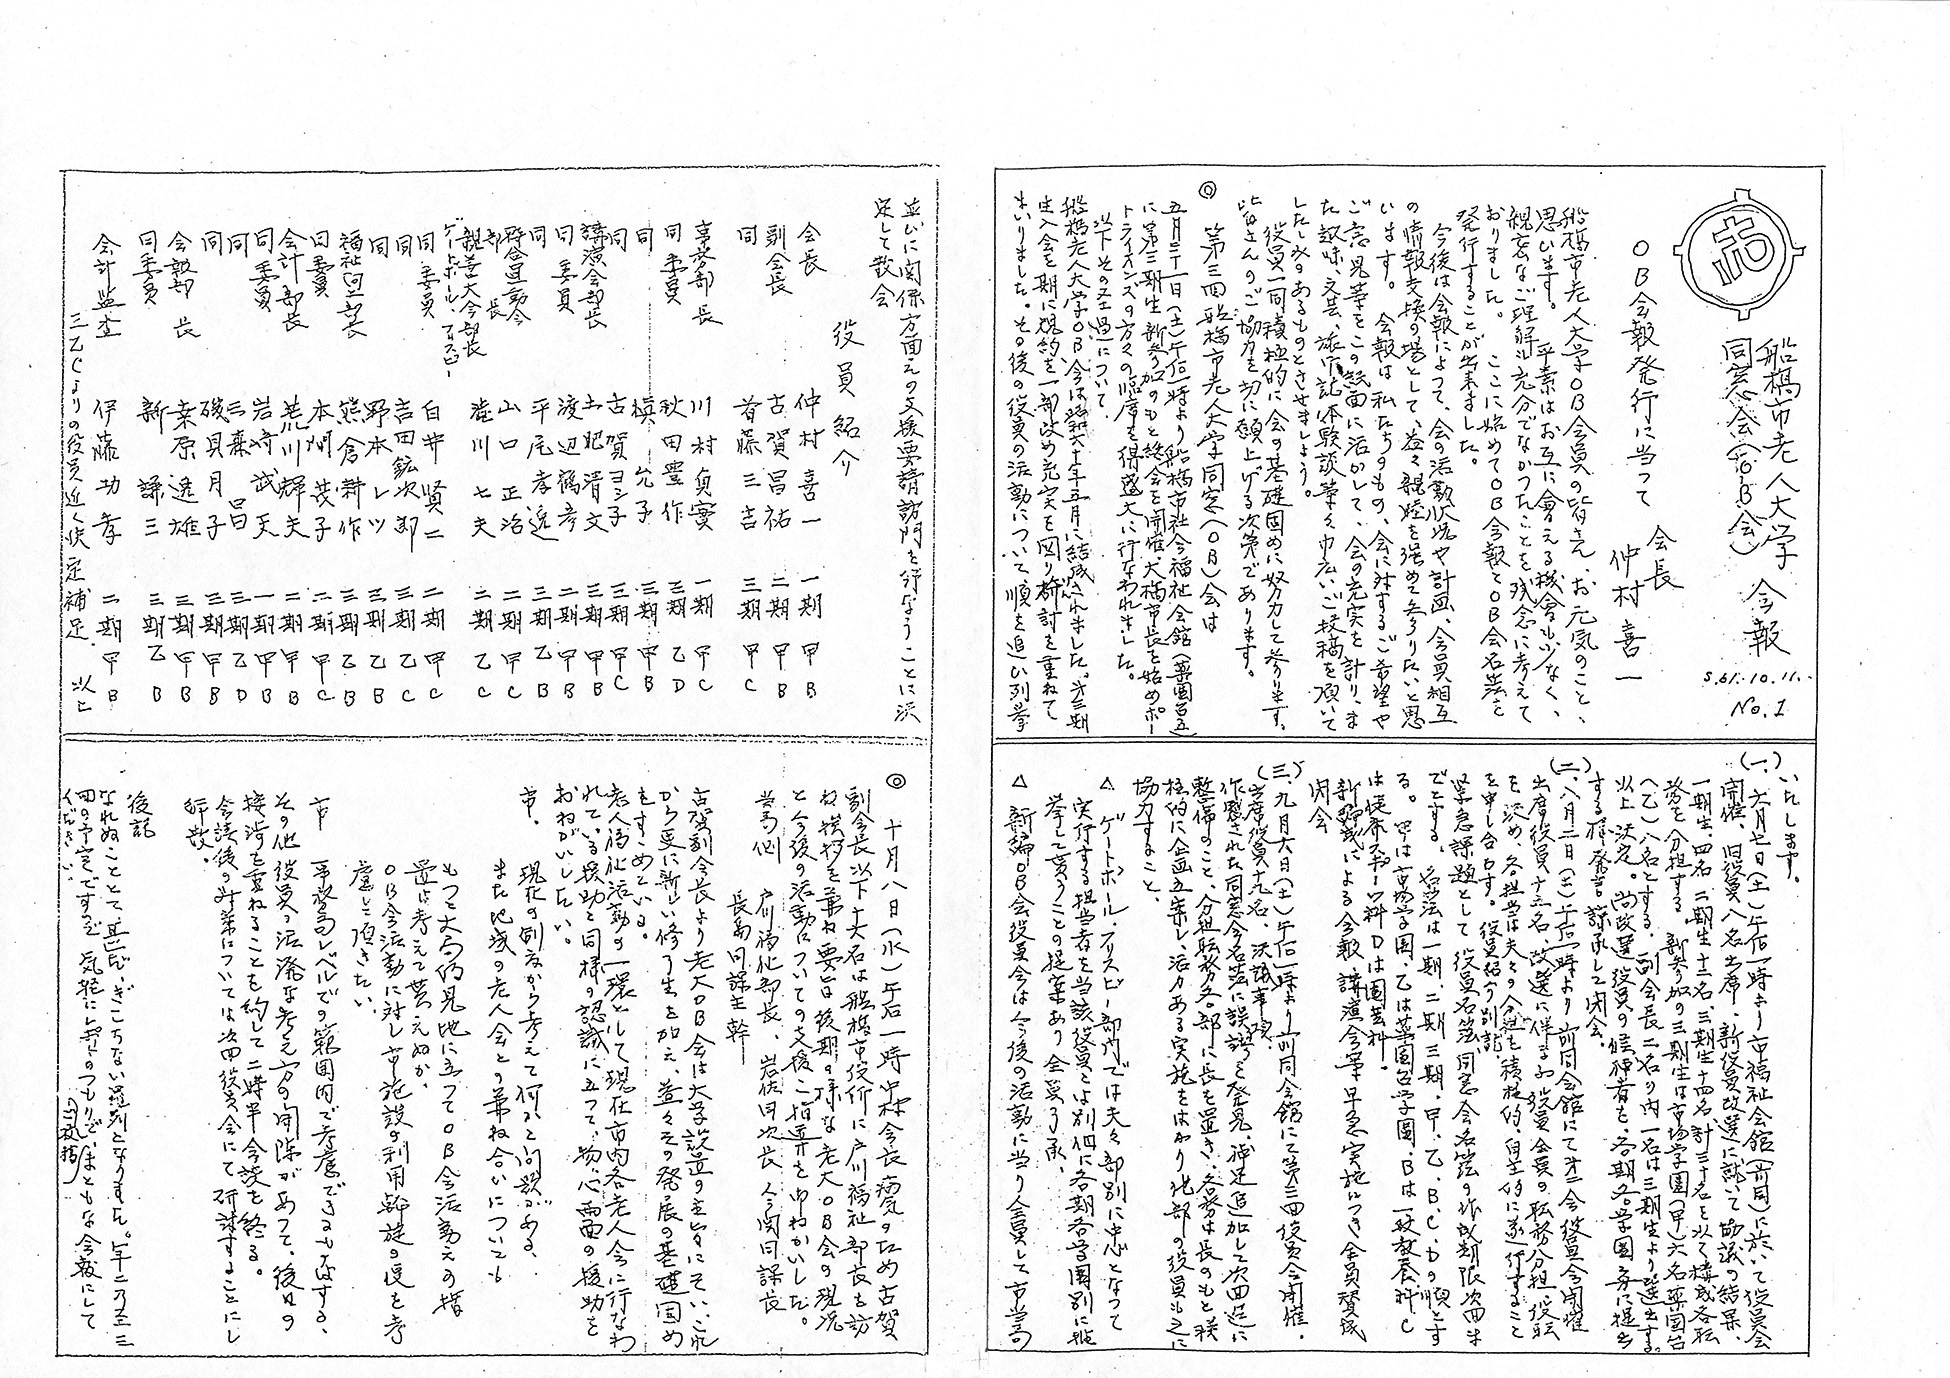 船橋市老人大学 会報
同窓会(O・B会)
S.61.10.11.
No.1
OB会報発行に当って
会長 仲村喜一
船橋市老人大学OB会員の皆さん、お元気のことゝ
思います。 平素はお互に會える機會も少なく、
親密なご理解も充分でなかったことを残念に考えて
おりました。 ここに始めてOB会報とOB会名簿を
発行することが出来ました。
今後は会報によって、会の活動状況や計画、会員相互
の情報交換の場として、益々親睦を深めて参りたいと思
います。 会報は私たちのもの、会に対するご希望や
ご意見等をこの紙面に活かして、会の充実を計り、ま
た趣味、文芸、旅行記、体験談等々巾広いご投稿を頂いて
したしみのあるものとさせましよう。
役員一同積極的に会の基礎固めに努力して参ります、
皆さんのご協力を切に願上げる次第であります。
◎ 第三回船橋市老人大学同窓(OB)会は
五月三十一日(土)午后一時より船橋市社会福祉会館(薬園台五)
に第三期生新参加のもと総会を開催、大橋市長を始めボー
トライオンズの方々の臨席を得盛大に行なわれました。
以下その経過について、
船橋老人大学OB会は昭和六十年五月に結成されました。第三期
生入会を期に規約を一部改め充実を図り検討を重ねて
まいりました。その後の役員の活動について、順を追ひ列挙
いたします。
(一)、六月七日(土)午后一時より市福祉会館(前同)に於いて役員会
開催、旧役員八名出席、新役員改選に就いて協議の結果、
一期生、四名、二期生十二名、三期生十四名計三十名を以て構成各役
務を分担する 新参加の三期生は市場学園(甲)六名薬園台
(乙)八名とする。副会長二名の内一名は三期生より選出する。
以上決定。尚改選役員の候補者を、各期各学園毎に提出
する様発言、諒承して閉会、
(二)、八月二日(土)午后一時より前同会館にて第二会役員会開催
出席役員十三名、改選に伴ふ役員全員の職務分担、役職
を決め、各担当は夫々の分担を積極的、自主的に遂行すること
を申し合せす。 役員紹介別記
緊急課題として 役員名簿、同窓会名簿の作成期限次回ま
でとする。 名簿は一期、二期、三期、甲、乙、B、C、Dの順とす
る。甲は市場学園、乙は薬園台学園、Bは一般教養科C
は健康スポーツ科Dは園芸科。
新編成による会報、講演会等早急実施につき全員賛成
閉会
(三)、九月六日(土)午后一時より前同会館にて第三回役員会開催、
出席役員十九名、決議事項。
作成された同窓会名簿に誤謬を発見、補足追加して次回迄に
整備のこと、分担職務各部に長を置き、各務は長のもと積
極的に企画立案し、活力ある実施をはかり他部の役員も之に
協力すること、
△ ゲートボール、フリスビー部門では夫々部別に中心となって
実行する担当者を当該役員とは別個に各期各学園別に推
挙して貰うことの提案あり全員了承。
△ 新編OB会役員会は今後の活動に当り全員して市当局
並びに関係方面えの支援要請訪問を行なうことに決
定して散会
役員紹介
会長 仲村喜一 一期 甲 B
副会長 古賀昌祐 二期 甲 B
同 首藤三吉 三期 甲 C
事務部長 川村貞實 一期 甲 C
同委員 秋田豊作 三期 乙 D
同 槙允子 三期 甲 B
同 古賀ヨシ子 三期 甲 C
講演会部長 土肥清文 三期 甲 B
同委員 渡辺鶴彦 二期 甲 B
同 平尾孝逸 三期 乙 B
時谷運動会部長 山口正治 二期 甲 C
親善大会部長
ゲートボール、フリスビー 滝川七夫 二期 乙 C
同委員 白井賢二 二期 甲 C
同 吉田鉱次郎 三期 乙 C
同 野本レツ 三期 乙 B
福祉向上部長 熊倉耕作 三期 乙 B
同委員 本間茂子 二期 甲 C
会計部長 荒川輝夫 二期 甲 B
同委員 岩崎武夫 一期 甲 B
同 三森昌 三期 乙 D
同 磯貝月子 三期 甲 B
会報部長 桑原透雄 三期 甲 B
同委員 新謙三 三期 乙 B
会計監査 伊藤功孝 二期 甲 B
三乙Cよりの役員近く決定補足、以上
◎ 十月八日(水)午后一時中村会長病気のため古賀
副会長以下十六名は船橋市役所に戸川福祉部長を訪
ね挨拶を兼ね要旨後期の様な老大OB会の現況
と今後の活動についての支援ご指導を申ねがいした。
当局側 戸川福祉部長、岩佐同次長、今関同課長
長島同課主幹
古賀副会長より老大OB会は大学設立の主旨にそい、これ
から更に新しい修了生を加え、益々その発展の基礎固め
をすすめている。
老人福祉活動の一環として現在市内各老人会に行なわ
れている援助と同様の認識に立って、物心両面の援助を
おねがいしたい。
市、 現在の制度から考えて何かと問題がある、
また地域の老人会との兼ね合いについても
もっと大局的見地に立ってOB会活動えの措
置を考えて貰えぬか、
OB会活動に対し市施設の利用斡旋の優を考
慮して頂きたい、
市 事務局レベルでの範囲内で考慮できるやではする、
その他役員の活発な考え方の開陳があって、後日の
接渉を重ねることを約して二時半会談を終る。
会談後の対策については次回役員会にて研討することにし
解散。
後記
なれぬこととて甚だ、ぎこちない羅列となりました。年二乃至三
回の予定ですが、気軽にお寄りのつもりでまともな会報にして
ください、